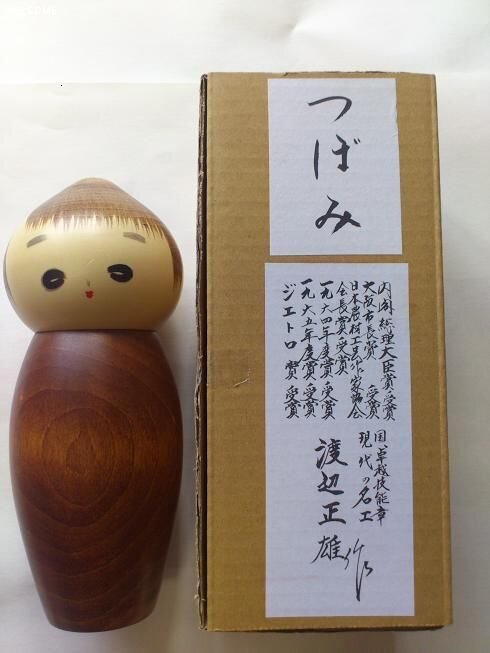 つぼみ
内閣総理大臣賞受賞
大阪市長賞 受賞
日本農村工芸作家協会
会長賞受賞
一九六四年度賞受賞
一九六五年度賞受賞
ジェトロ賞 受賞
国・卓越技能章
現代の名工
渡辺正雄作